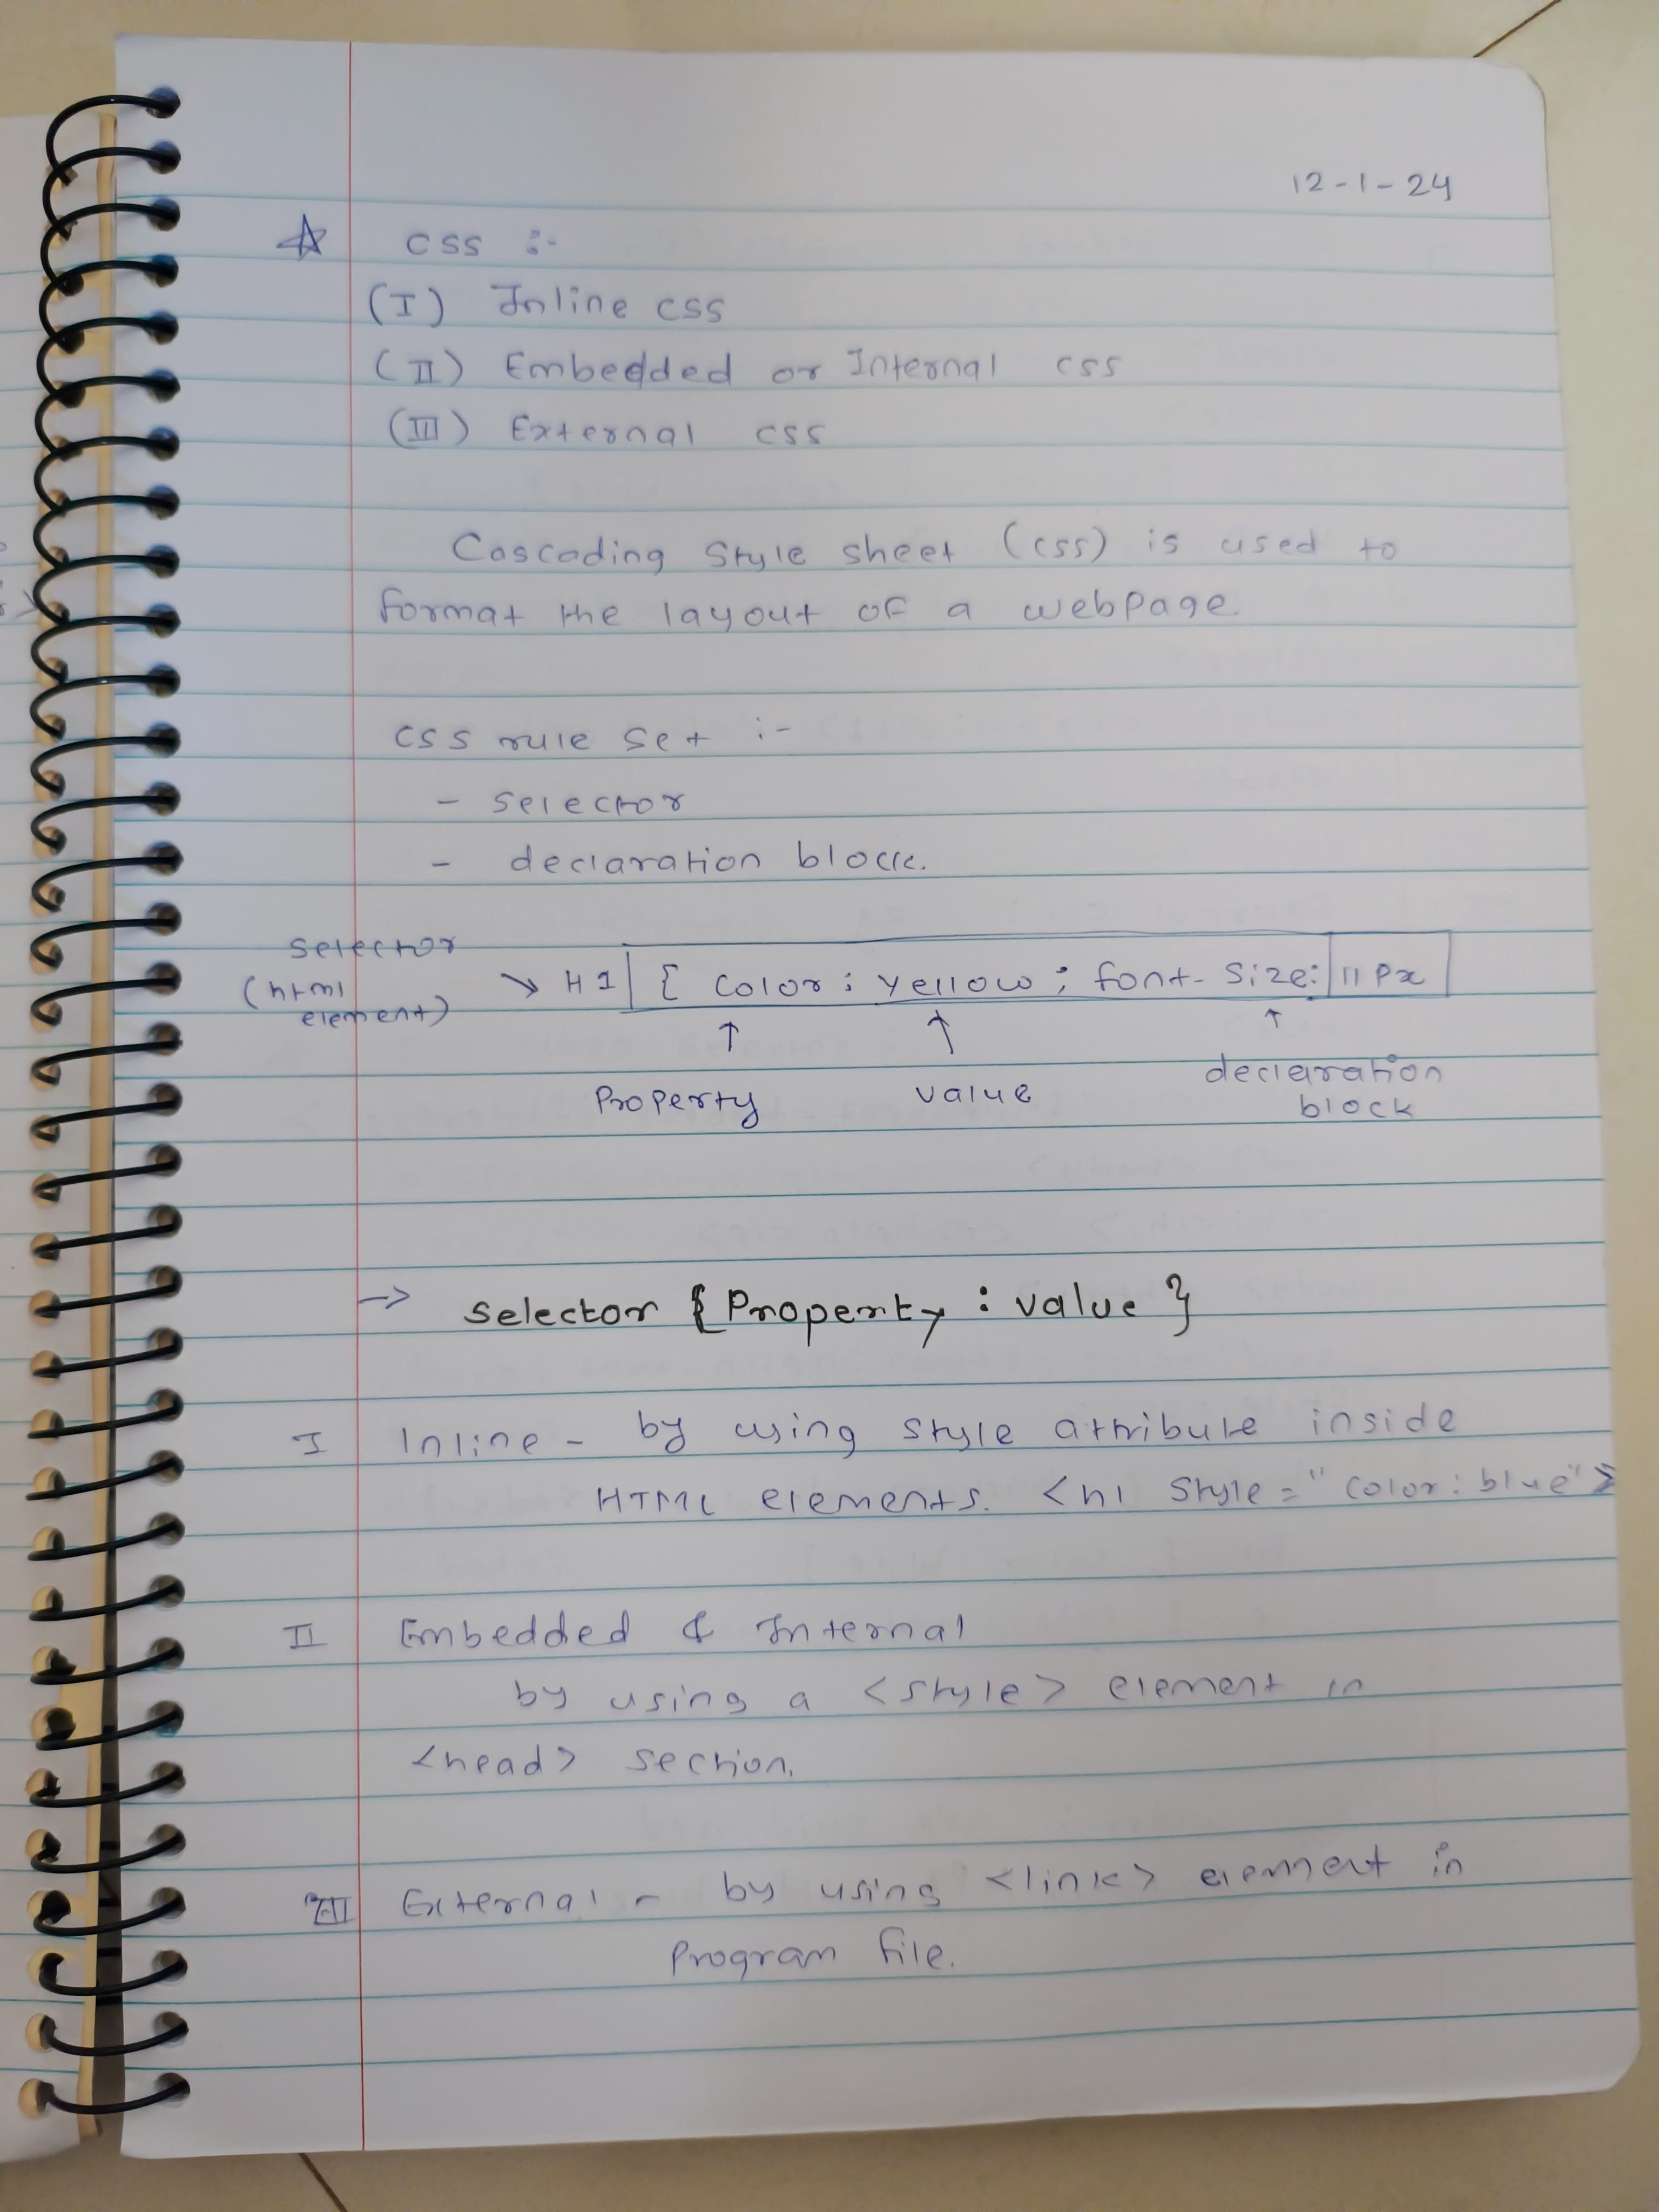 12-1-24
☆ CSS :-
(I) Inline CSS
(II) Embedded or Internal CSS
(III) External CSS
Cascading Style sheet (CSS) is used to
format the layout of a webpage
CSS rule set :-
- selector
- declaration block.
selector
(html
element)
→ H1 { color : yellow ; font-size: 11px
↑ ↑ ↑
Property value declaration
block
→ selector { Property : value }
I Inline - by using style attribute inside
HTML elements. <h1 Style = "color : blue">
II Embedded & Internal
by using a <style> element in
<head> section.
III External - by using <link> element in
Program file.